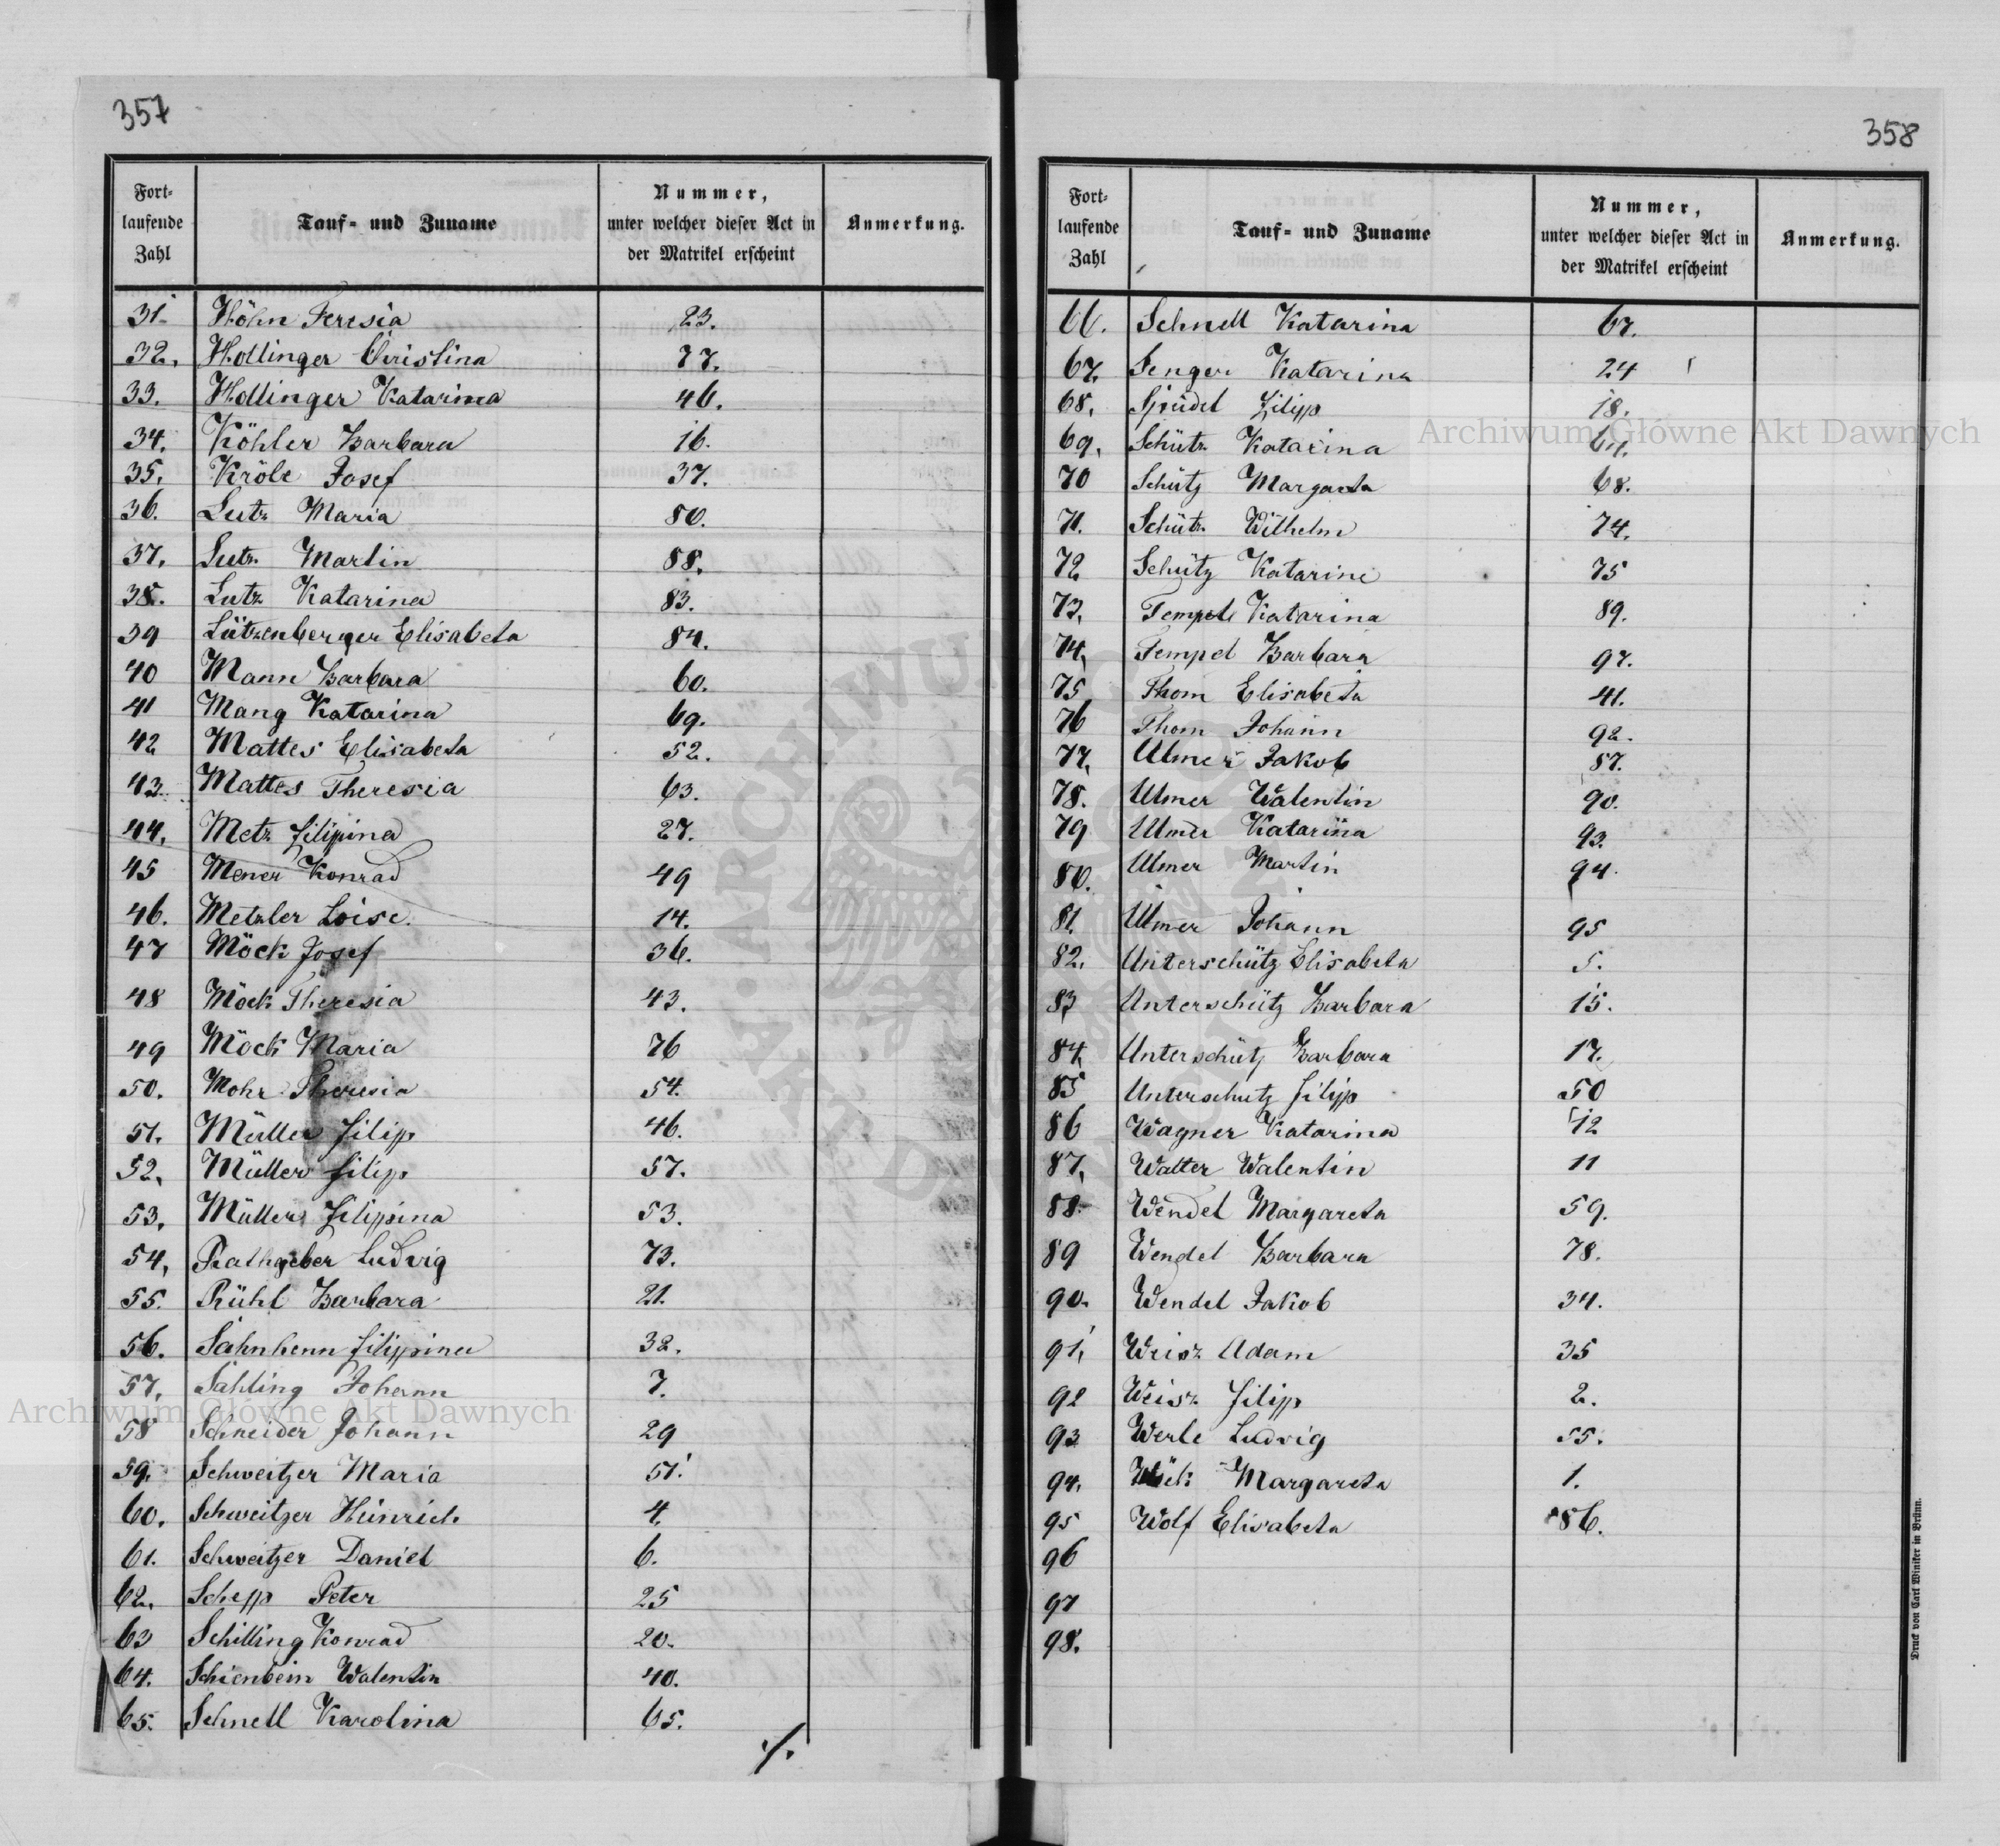 357
Fort-
laufende
Zahl
Tauf- und Zuname
Nummer,
unter welcher dieser Act in
der Matrikel erscheint
Anmerkung.
31. Höhn Teresia 23.
32. Hollinger Christina 77.
33. Hollinger Katarina 46.
34. Köhler Barbara 16.
35. Kröle Josef 37.
36. Lutz Maria 80.
37. Lutz Martin 88.
38. Lutz Katarina 83.
39 Lützenberger Elisabeta 84.
40 Mann Barbara 60.
41 Mang Katarina 69.
42 Mattes Elisabeta 52.
43. Mattes Theresia 63.
44. Metz Filipina 27.
45 Mener Konrad 49
46. Metzler Loise. 14.
47 Möck Josef 36.
48 Möck Theresia 43.
49 Möck Maria 76
50. Mohr Theresia 54.
51. Müller Filip 46.
52. Müller Filip 57.
53. Müller Filippina 53.
54. Rathgeber Ludvig 73.
55. Rühl Barbara 21.
56. Sahnhenn Filippina 32.
57. Sahling Johann 7.
58 Schneider Johann 29
59. Schweitzer Maria 51.
60. Schweitzer Heinrich 4.
61. Schweitzer Daniel 6.
62. Schepp Peter 25
63 Schilling Konrad 20.
64. Schienbein Walentin 40.
65. Schnell Karolina 65.
./.
358
Fort-
laufende
Zahl
Tauf- und Zuname
Nummer,
unter welcher dieser Act in
der Matrikel erscheint
Anmerkung.
66. Schnell Katarina 67.
67. Senger Katarina 24
68. Speidel Filipp 18.
69. Schütz Katarina
70 Schütz Margareta 68.
71. Schütz Wilhelm 74.
72 Schütz Katarine 75
73. Tempel Katarina 89.
74. Tempel Barbara 97.
75 Thom Elisabeta 41.
76 Thom Johann 92.
77. Ulmer Jakob 87.
78. Ulmer Walentin 90.
79 Ulmer Katarina 93.
80. Ulmer Martin 94.
81. Ulmer Johann 95
82. Unterschütz Elisabeta 5.
83 Unterschütz Barbara 15.
84. Unterschütz Barbara 17.
85 Unterschutz Filipp 50
86 Wagner Katarina 12
87. Walter Walentin 11
88. Wendel Margareta 59.
89 Wendel Barbara 78.
90. Wendel Jakob 34.
91. Weisz Adam 35
92 Weisz Filipp 2.
93 Werle Ludvig 55.
94. Margareta 1.
95 Wolf Elisabeta 86.
96
97
98.
Druck von Carl Winiker in Brünn.
Archiwum Główne Akt Dawnych
Archiwum Główne Akt Dawnych